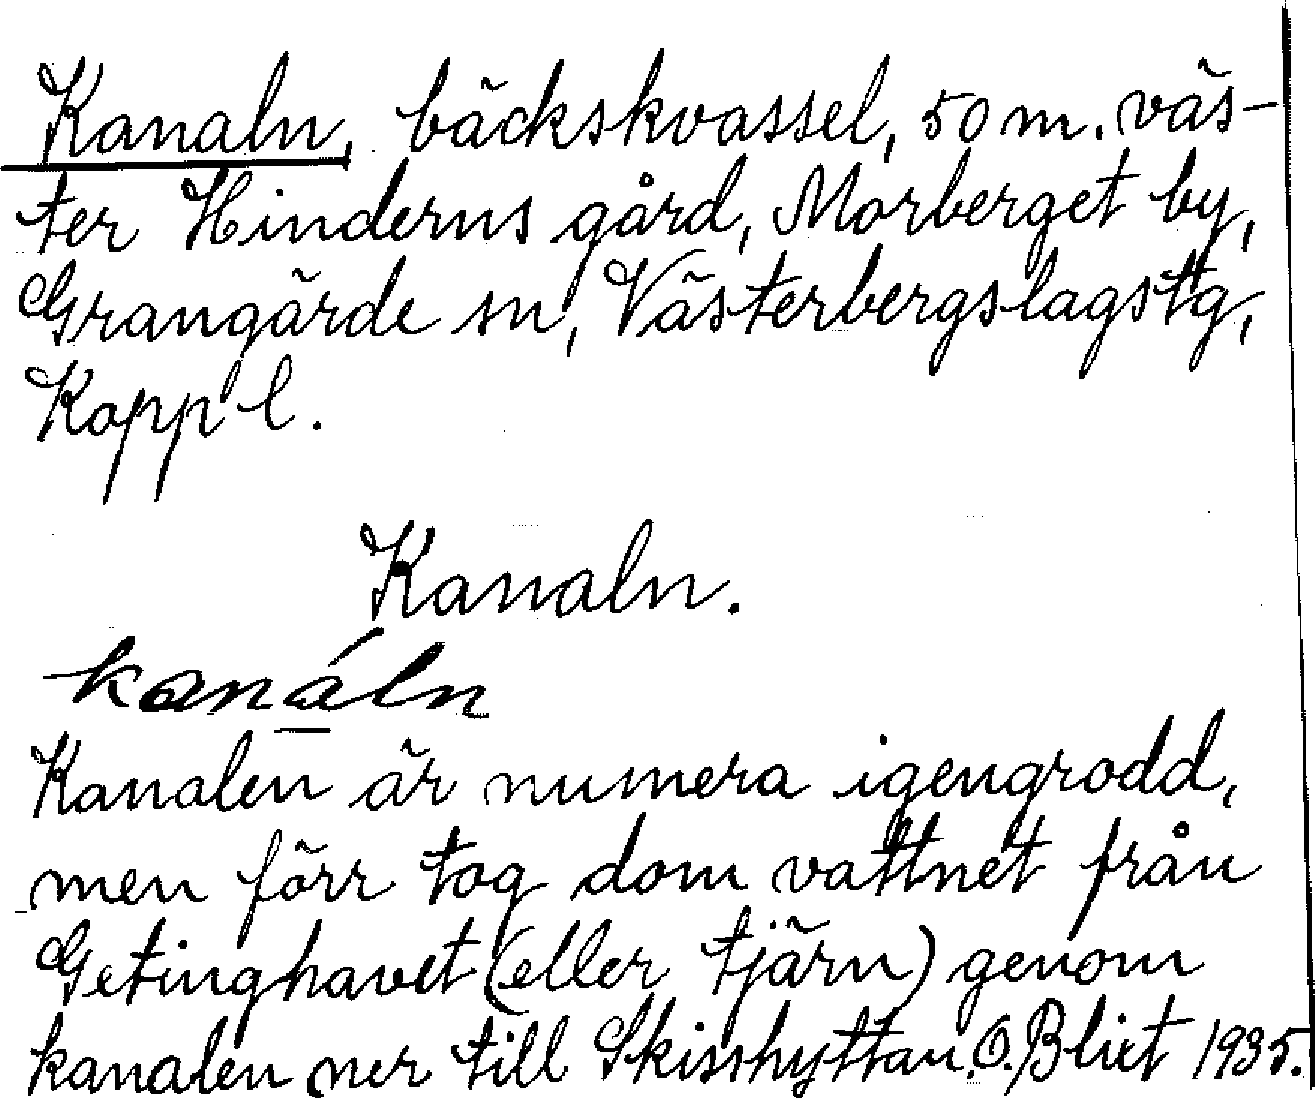 Kanaln, bäckskvassel, 50 m. väs-
ter Hinderns gård, Morberget by,
Grangärde sn, Västerbergslagstg,
Kopp l.
Kanaln.
kanáln
Kanalen är numera igengrodd,
men förr tog dom vattnet från
Getinghavet (eller tjärn) genom
kanalen ner till Skisshyttan. O. Bliet 1935.